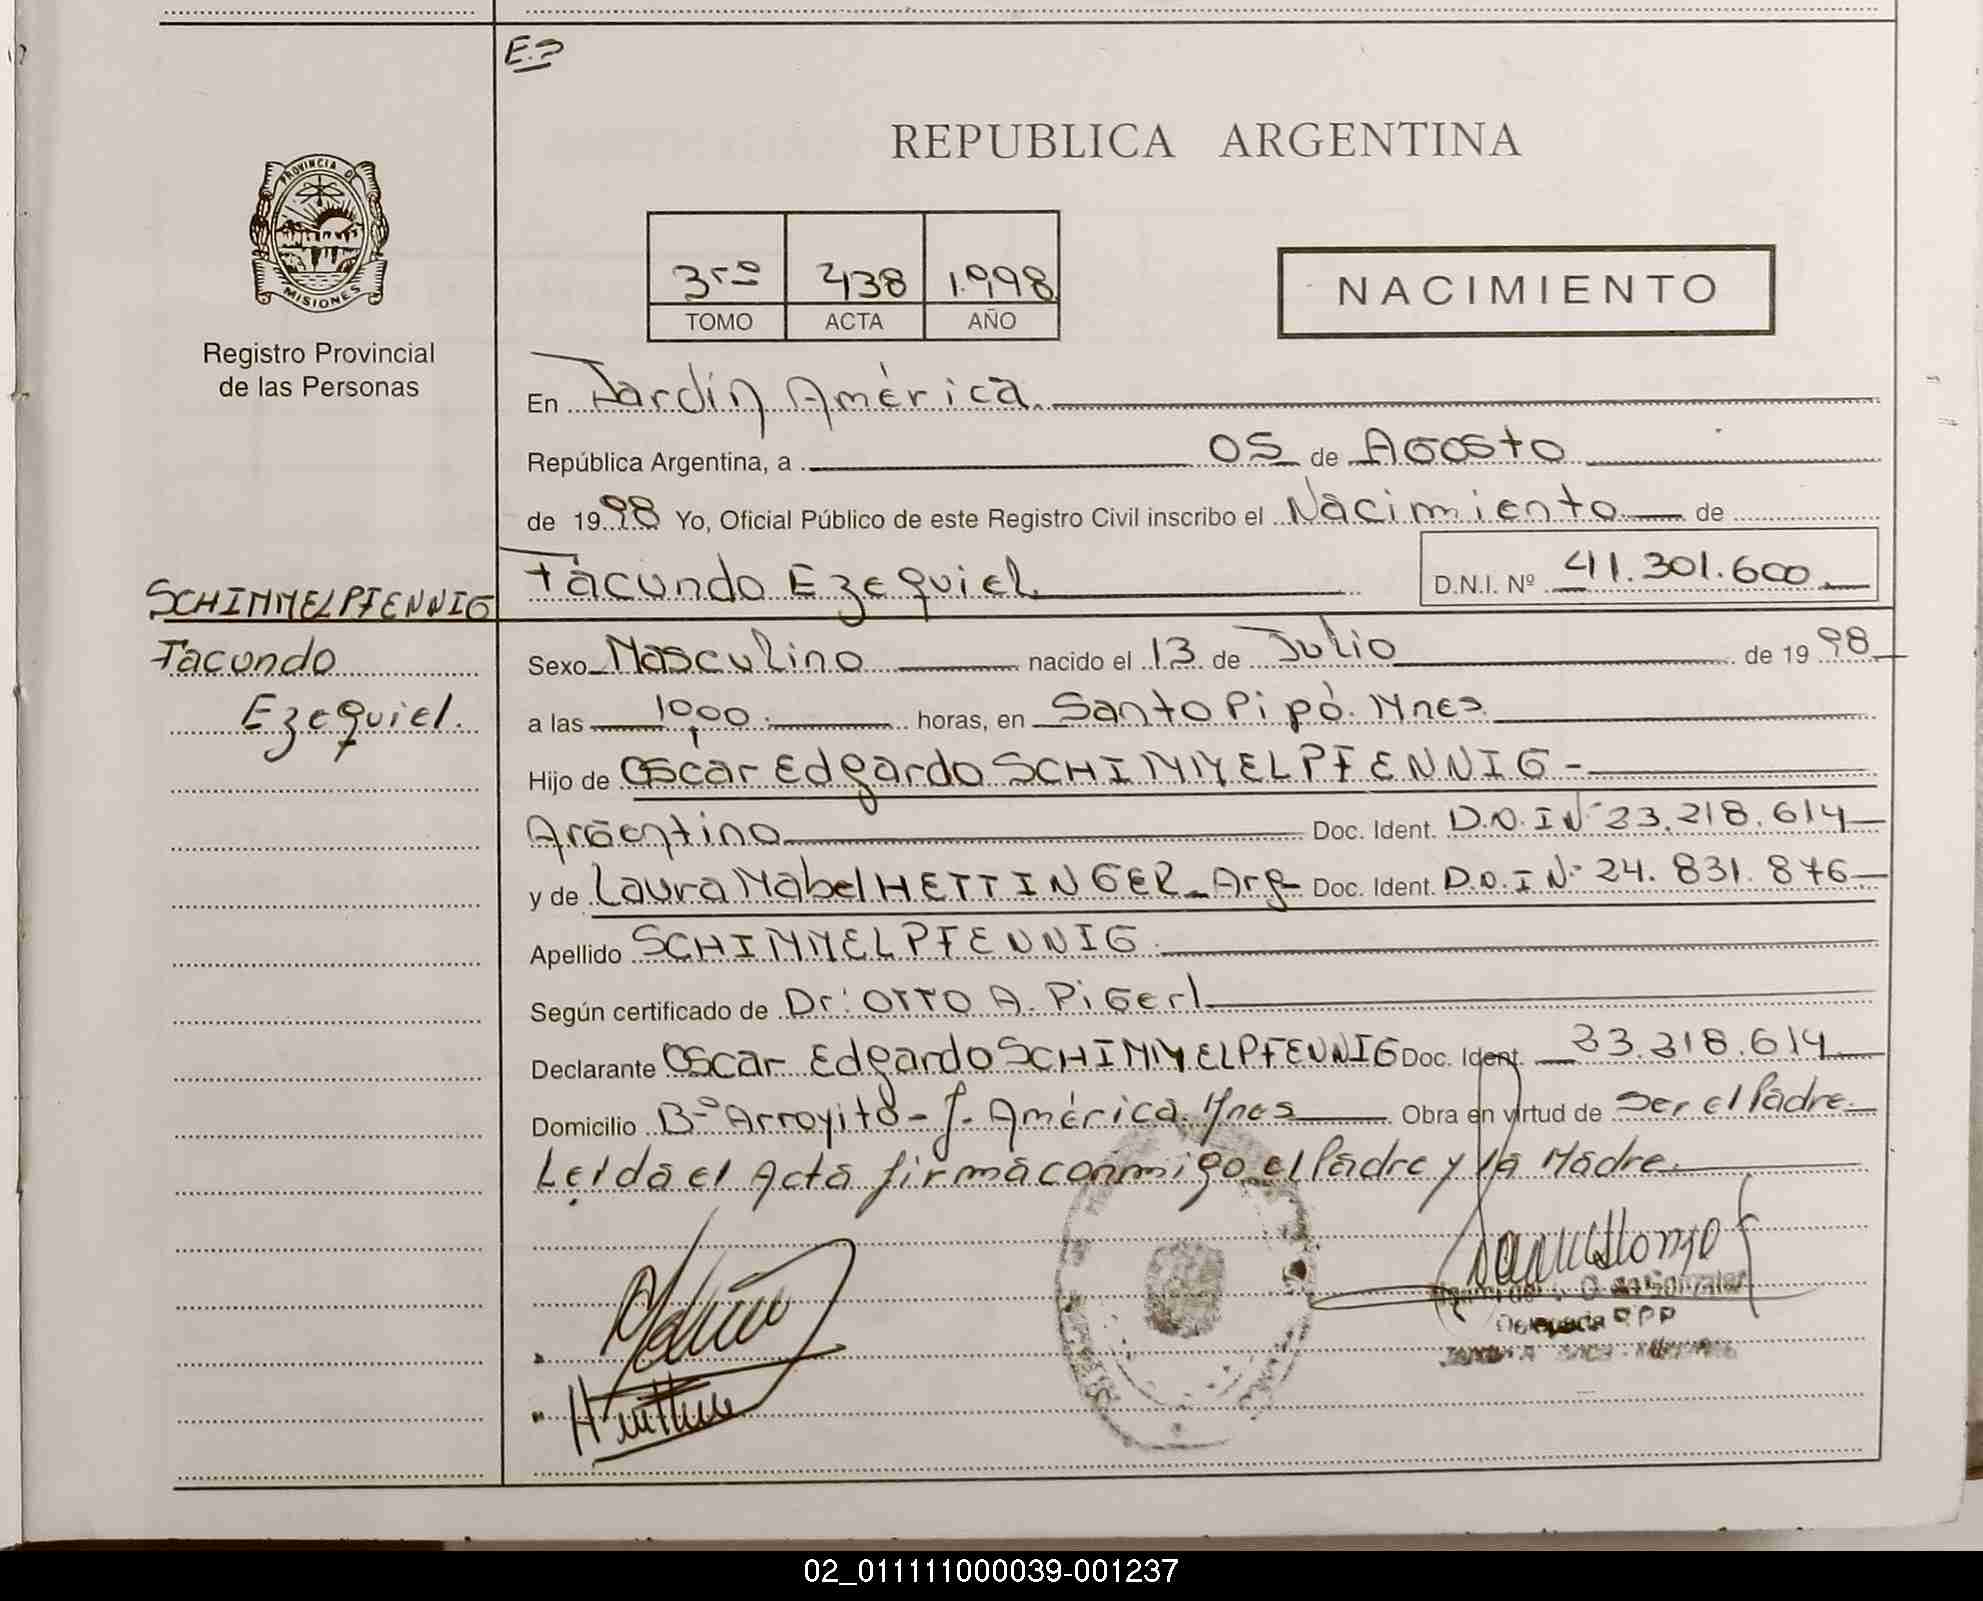 REPUBLICA ARGENTINA
PROVINCIA DE
MISIONES
Registro Provincial
de las Personas
3ro 438 1.998
TOMO ACTA AÑO
NACIMIENTO
En Jardín América.
República Argentina, a 05 de Agosto
de 1998 Yo, Oficial Público de este Registro Civil inscribo el Nacimiento de
Facundo Ezequiel D.N.I. Nº 41.301.600
SCHIMMELPFENNIG
Facundo
Ezequiel.
Sexo Masculino nacido el 13 de Julio de 1998
a las 10,00 horas, en Santo Pipó. Mnes
Hijo de Oscar Edgardo SCHIMMELPFENNIG -
Argentino Doc. Ident. D.N.I Nº 23.218.614
y de Laura Mabel HETTINGER - Arg Doc. Ident. D.N.I Nº 24.831.876
Apellido SCHIMMELPFENNIG.
Según certificado de Dr: OTTO A. PiGerl
Declarante Oscar Edgardo SCHIMMELPFENNIG Doc. Ident. 23.218.614
Domicilio Bº Arroyito - J. América. Mnes Obra en virtud de Ser el Padre.
Leída el Acta firma conmigo el Padre y la Madre.
02_011111000039-001237